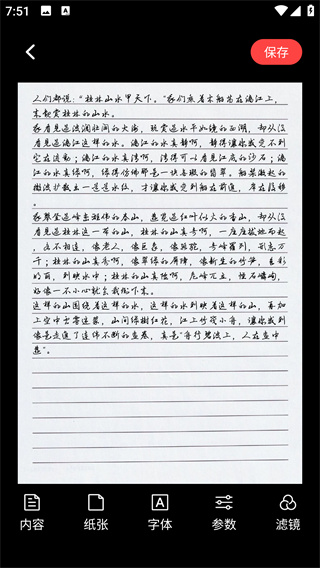 7:51
保存
人们都说："桂林山水甲天下。"我们乘着木船荡在漓江上，
来观赏桂林的山水。
我看见过波澜壮阔的大海，玩赏过水平如镜的西湖，却从没
看见过漓江这样的水。漓江的水真静啊，静得让你感觉不到
它在流动；漓江的水真清啊，清得可以看见江底的沙石；漓
江的水真绿啊，绿得仿佛那是一块无瑕的翡翠。船桨激起的
微波扩散出一道道水纹，才让你感觉到船在前进，岸在后移
。
我攀登过峰峦雄伟的泰山，游览过红叶似火的香山，却从没
看见过桂林这一带的山，桂林的山真奇啊，一座座拔地而起
，各不相连，像老人，像巨象，像骆驼，奇峰罗列，形态万
千；桂林的山真秀啊，像翠绿的屏障，像新生的竹笋，色彩
明丽，倒映水中；桂林的山真险啊，危峰兀立，怪石嶙峋，
好像一不小心就会栽倒下来。
这样的山围绕着这样的水，这样的水倒映着这样的山，再加
上空中云雾迷蒙，山间绿树红花，江上竹筏小舟，让你感到
像是走进了连绵不断的画卷，真是"舟行碧波上，人在画中
游"。
内容
纸张
字体
参数
滤镜